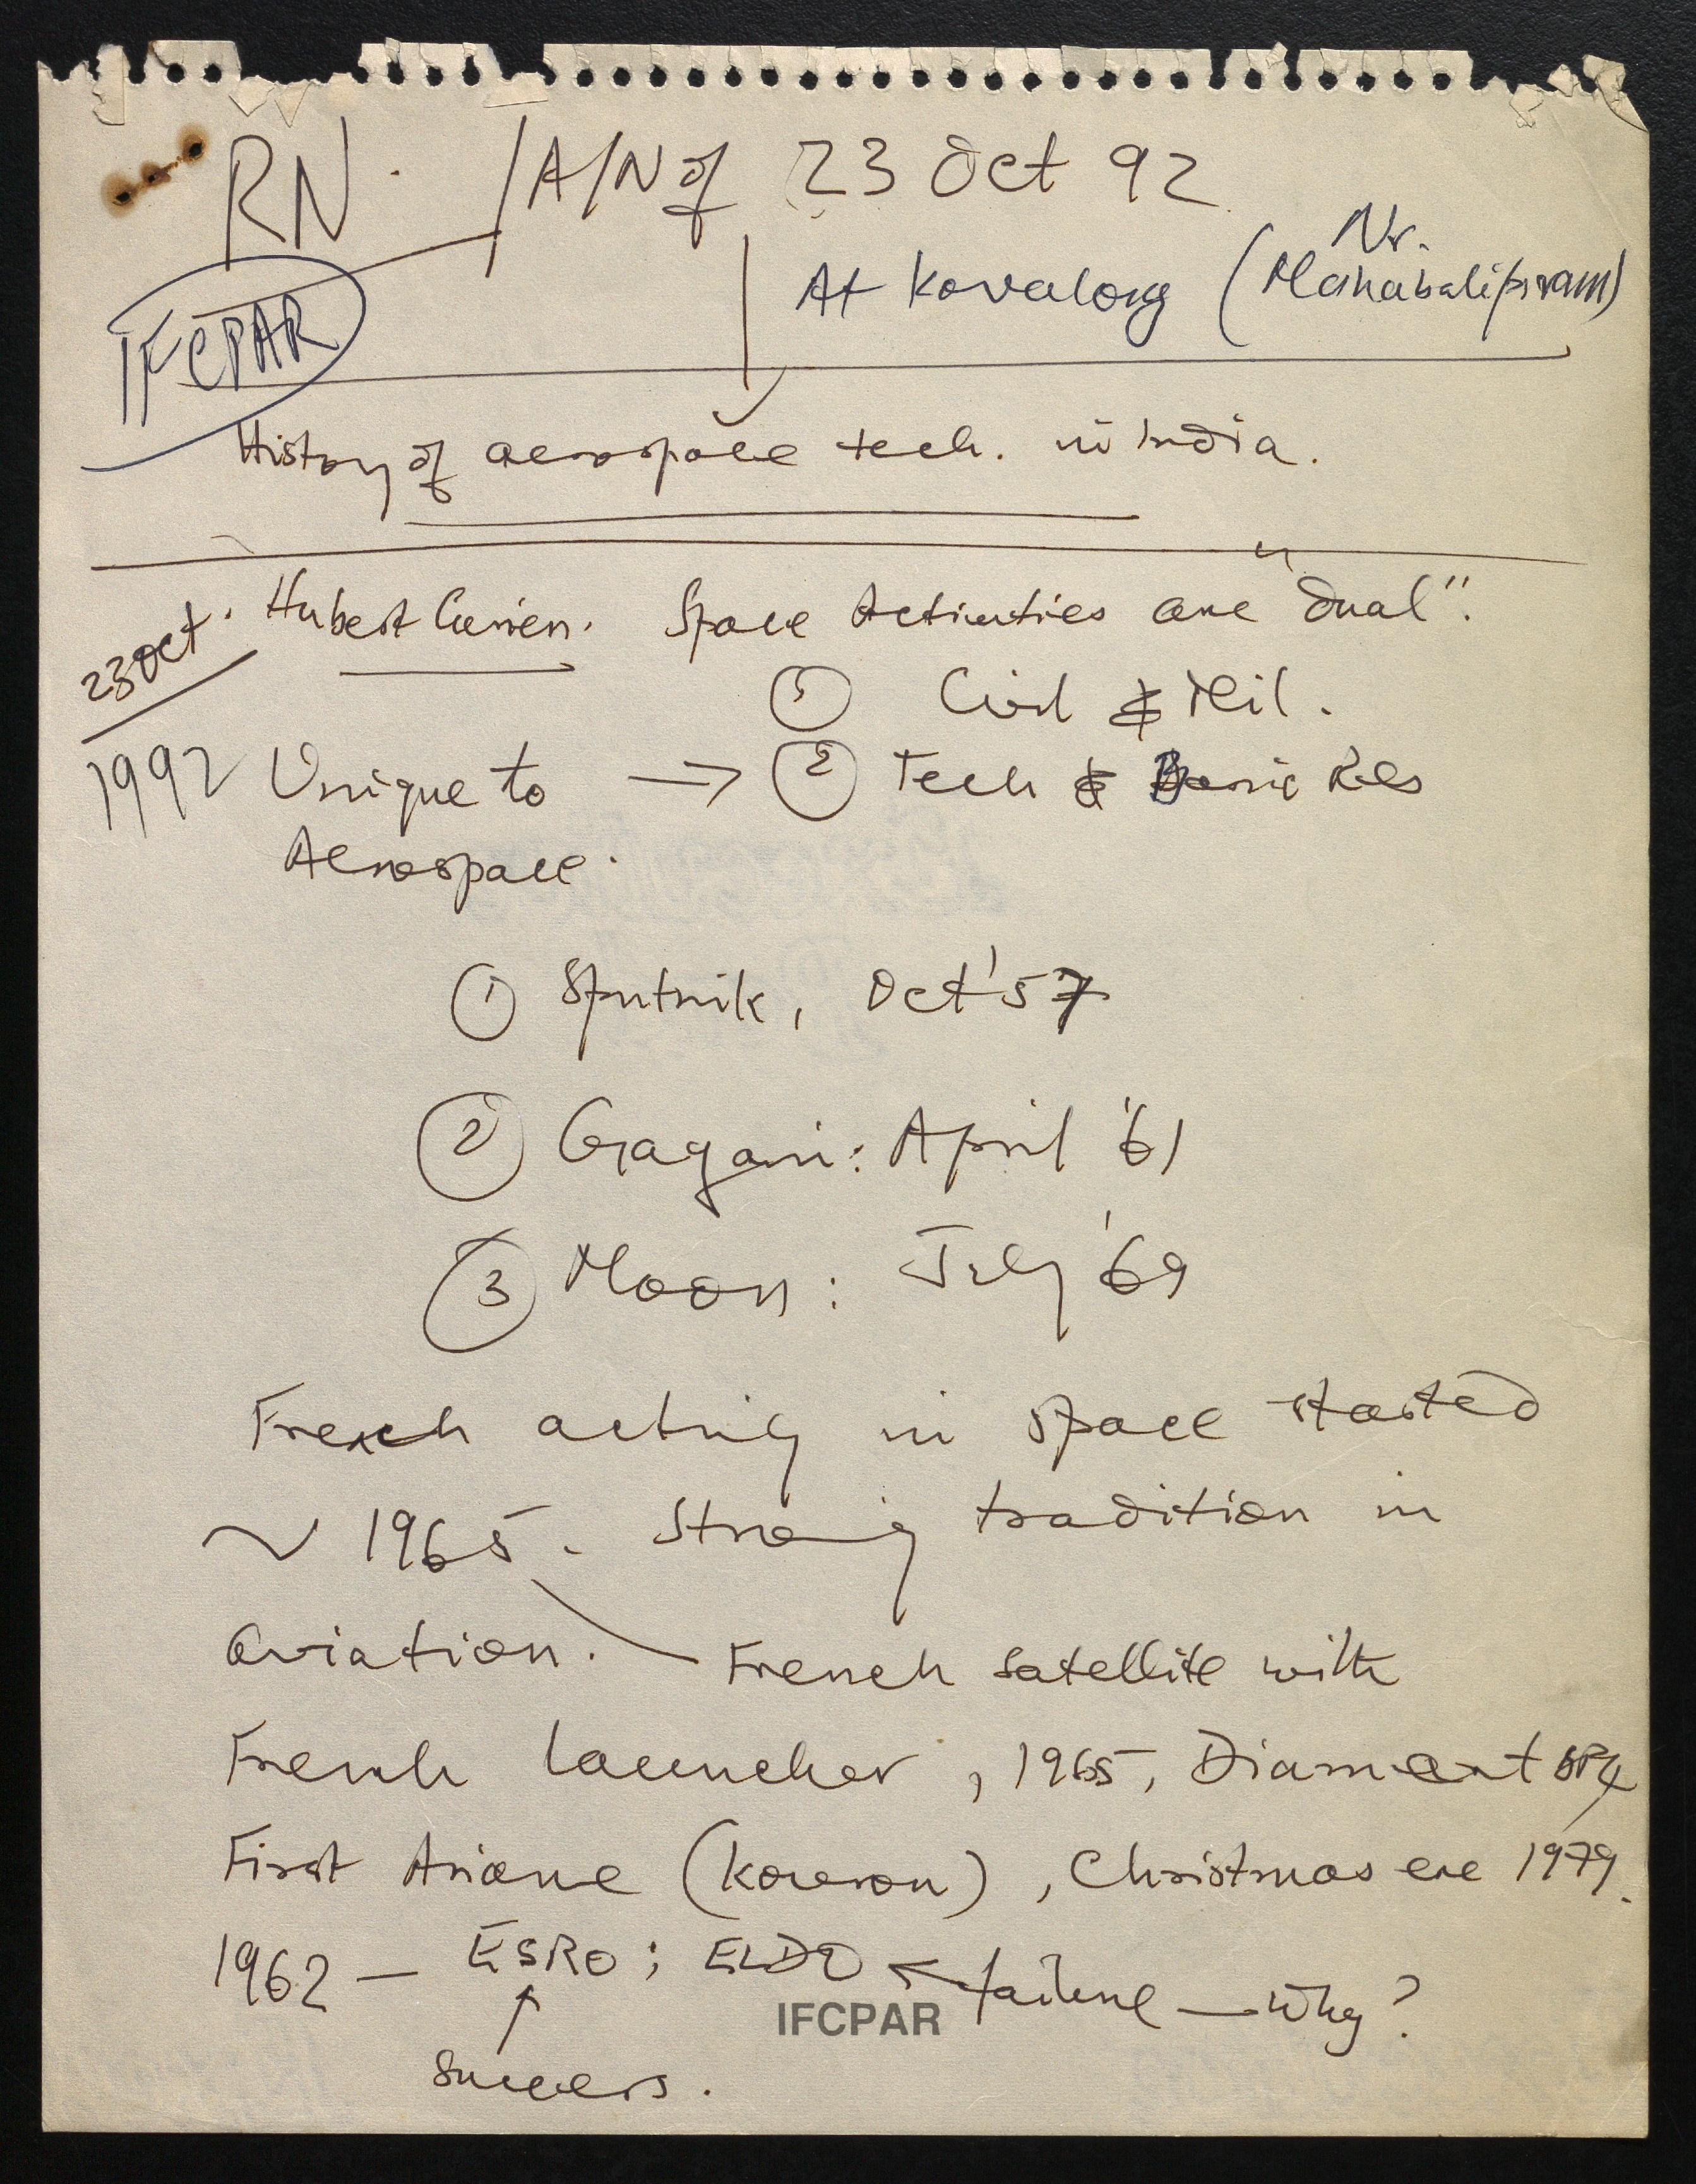 RN. / A/N of 23 Oct 92
IFCPAR
At Kovalong (Nr. Mahabalipuram)
History of aerospace tech. in India.
23 Oct. 1992
Hubert Curien. Space Activities are "dual".
① Civil & Mil.
Unique to → ② Tech & Basic Res
Aerospace.
① Sputnik, Oct '57
② Gagarin: April '61
③ Moon: July '69
French activity in space started
~ 1965. Strong tradition in
aviation. French satellite with
French launcher, 1965, Diamant
First Ariane (Kourou), Christmas eve 1979.
1962 — ESRO; ELDO ← failure — Why?
↑
Success.
IFCPAR